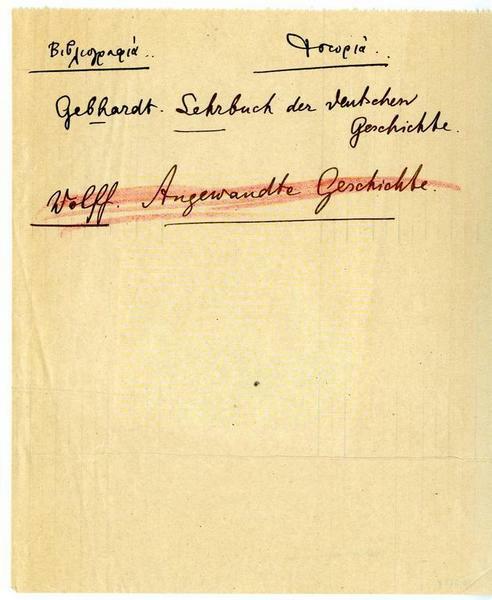 Βιβλιογραφία. Ἱστορία.
Gebhardt. Lehrbuch der deutschen
Geschichte.
Wolff. Angewandte Geschichte.